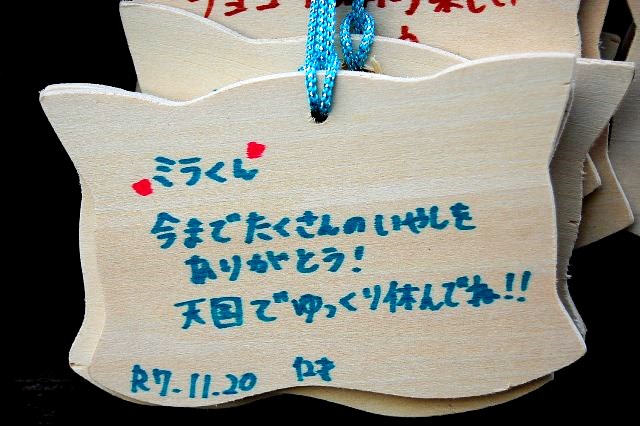 ミラくん
今までたくさんのいやしを
ありがとう!
天国でゆっくり休んでね!!
R7.11.20